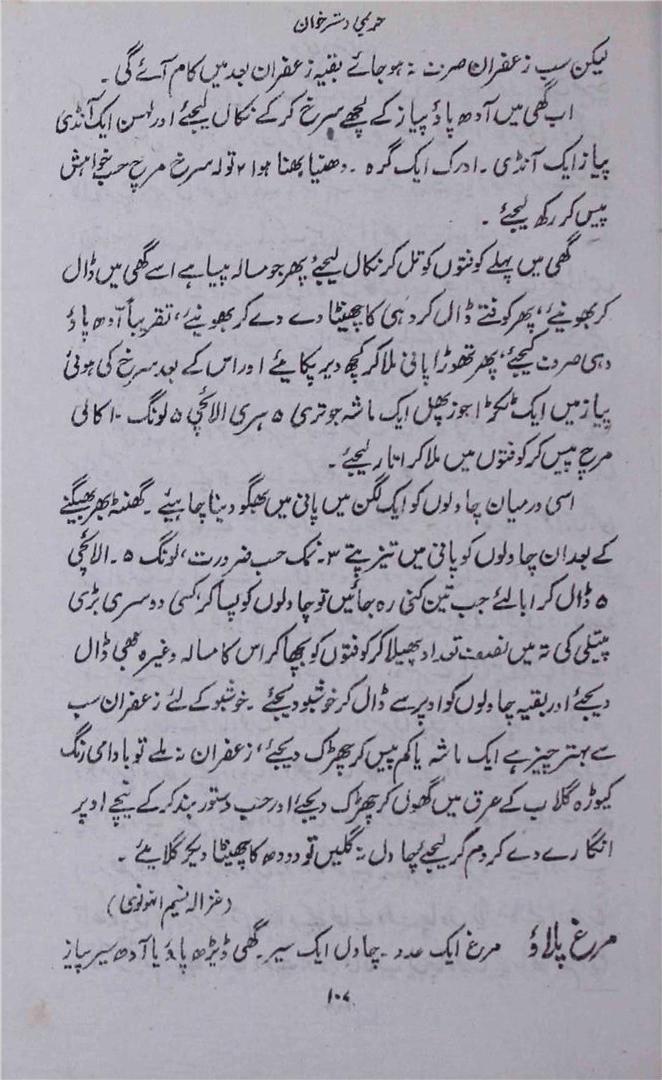 حریمی دسترخوان
لیکن سب زعفران صرف نہ ہو جائے بقیہ زعفران بعد میں کام آئے گی۔
اب گھی میں آدھ پاؤ پیاز کے لچھے سرخ کر کے نکال لیجئے اور لہسن ایک آنڈی
پیاز ایک آنڈی۔ ادرک ایک گرہ۔ دھنیا بھنا ہوا ۲ تولہ سرخ مرچ حسب خواہش
پیس کر رکھ لیجئے۔
گھی میں پہلے کوفتوں کو تل کر نکال لیجئے پھر جو مسالہ پیسا ہے اسے گھی میں ڈال
کر بھونیے، پھر کوفتے ڈال کر دہی کا چھینٹا دے دے کر بھونیے، تقریباً آدھ پاؤ
دہی صرف کیجئے، پھر تھوڑا پانی ملا کر کچھ دیر پکایئے اور اس کے بعد سرخ کی ہوئی
پیاز میں ایک ٹکڑا جوز پھل ایک ماشہ جوتری ۵ ہری الائچی ۵ لونگ ۱۰ کالی
مرچ پیس کر کوفتوں میں ملا کر اتار لیجئے۔
اسی درمیان چاولوں کو ایک لگن میں پانی میں بھگو دینا چاہیئے۔ گھنٹہ بھر بھیگنے
کے بعد ان چاولوں کو پانی میں تیز پتے ۳۔ نمک حسب ضرورت، لونگ ۵۔ الائچی
۵ ڈال کر ابالئے جب تین کنی رہ جائیں تو چاولوں کو پسا کر کسی دوسری بڑی
پتیلی کی تہ میں نصف تعداد پھیلا کر کوفتوں کو بچھا کر اس کا مسالہ وغیرہ بھی ڈال
دیجئے اور بقیہ چاولوں کو اوپر سے ڈال کر خوشبو دیجئے۔ خوشبو کے لئے زعفران سب
سے بہتر چیز ہے ایک ماشہ یا کم پیس کر چھڑک دیجئے، زعفران نہ ملے تو بادامی رنگ
کیوڑہ گلاب کے عرق میں گھول کر چھڑک دیجئے اور حسب دستور بند کر کے نیچے اوپر
انگارے دے کر دم کر لیجئے چاول نہ گلیں تو دودھ کا چھینٹا دیکر گلایئے۔
(غزالہ نسیم انہونوی)
مرغ پلاؤ مرغ ایک عدد۔ چاول ایک سیر۔ گھی ڈیڑھ پاؤ یا آدھ سیر پیاز
۱۰۷